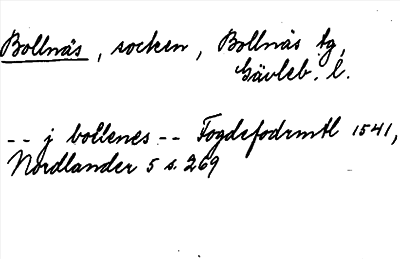 Bollnäs, socken, Bollnäs tg,
Gävleb. l.
-- j bollenes -- Fogdefodrmtl 1541,
Nordlander 5 s. 269